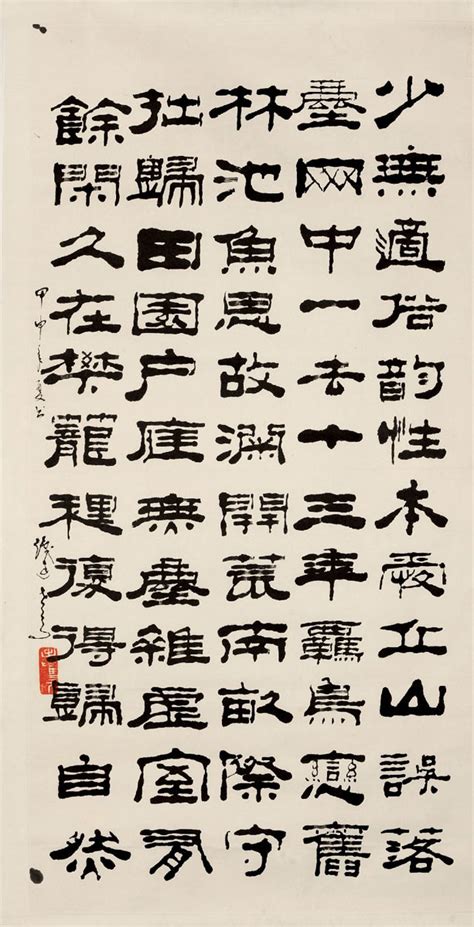 少無適俗韵性本愛丘山誤落
塵网中一去十三年羈鳥戀舊
林池魚思故淵開荒南畝際守
拙歸田園户庭無塵雜虛室有
餘閑久在樊籠裡復得歸自然
甲申年夏